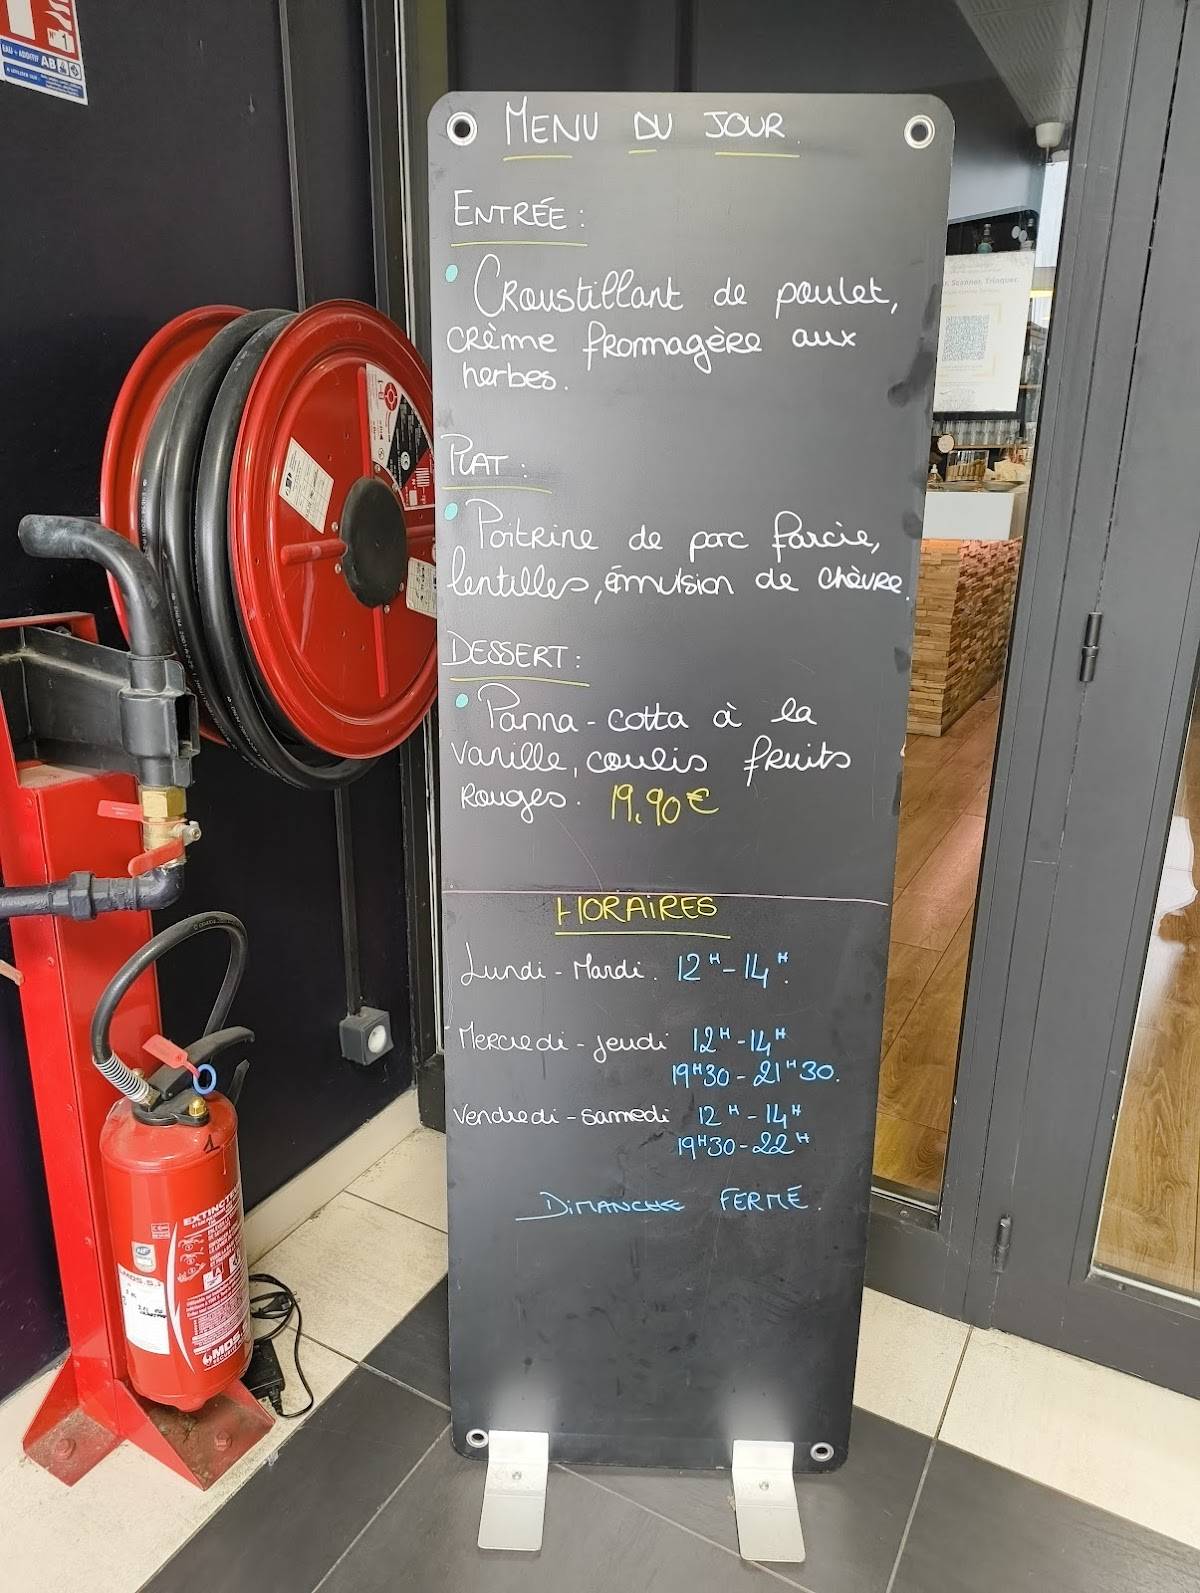 N°1
EAU + ADDITIF AB
MENU DU JOUR.
ENTRÉE :
Croustillant de poulet,
crème fromagère aux
herbes.
PLAT :
Poitrine de porc farcie,
lentilles, émulsion de chèvre.
DESSERT :
Panna-cotta à la
vanille, coulis fruits
rouges. 19,90€
HORAIRES
Lundi - Mardi. 12H-14H.
Mercredi - jeudi 12H-14H
19H30 - 21H30.
Vendredi - samedi 12H - 14H
19H30-22H
DIMANCHE FERMÉ.
Scanner, Trinquer.
EXTINCTEUR
MOS
1